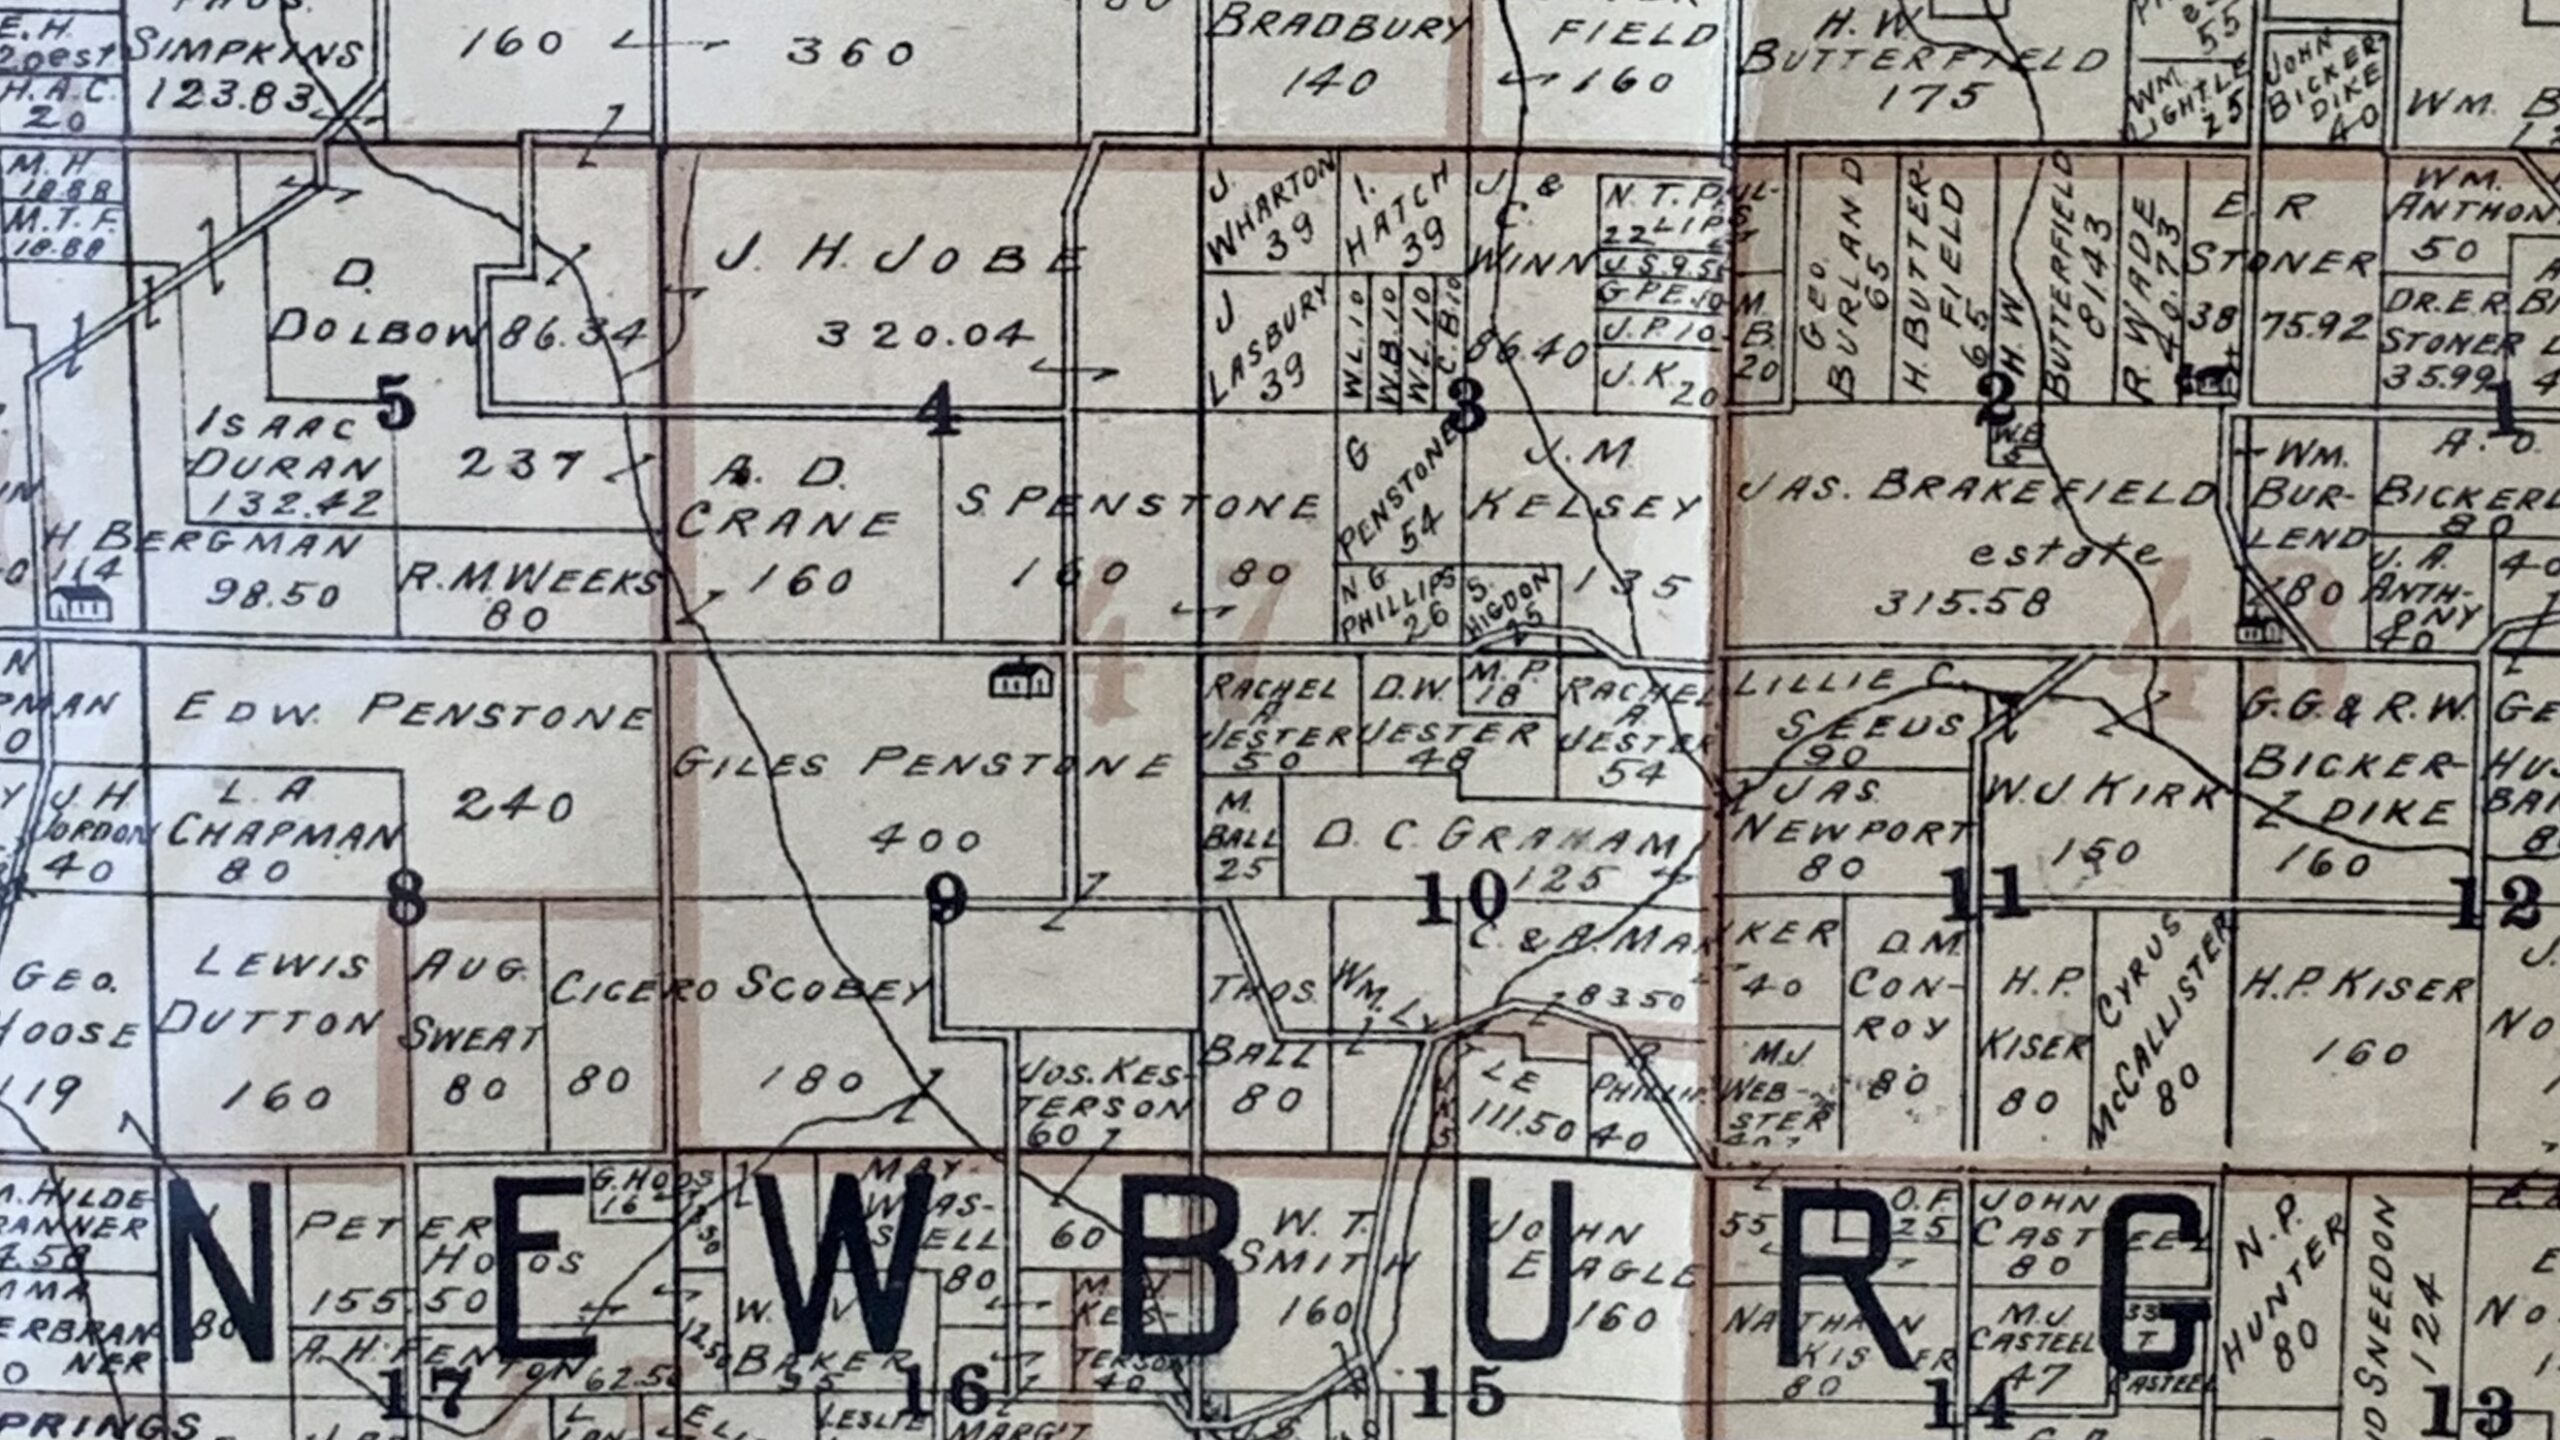 E. H.
20 est
H. A. C.
20
SIMPKINS
123.83
160
360
BRADBURY
140
FIELD
160
H. W.
BUTTERFIELD
175
55
WM.
LIGHTLE
25
JOHN
BICKER
DIKE
40
WM. B
M. H
18.88
M. T. F.
18.88
D.
DOLBOW
86.34
J. H. JOBE
320.04
J.
WHARTON
39
I.
HATCH
39
J. &
C.
WINN
86.40
N. T. PHIL-
LIPS
22
J. S. 9.5
G P E. 10
J. P. 10
J. K. 20
M.
B.
20
J
LASBURY
39
W. L. 10
W. B. 10
W. L. 10
C. B. 10
GEO.
BURLAND
65
H. BUTTER-
FIELD
65
H. W.
BUTTERFIELD
81.43
R. WADE
40.73
E. R
STONER
38
75.92
WM.
ANTHON
50
DR. E. R.
STONER
35.99
5
4
3
2
1
ISAAC
DURAN
132.42
237
A. D.
CRANE
160
S. PENSTONE
160
80
G
PENSTONE
54
J. M
KELSEY
135
W. B
JAS. BRAKEFIELD
estate
315.58
WM.
BUR-
LEND
80
A. O.
BICKERD
80
J. A.
ANTH-
ONY
40
40
H BERGMAN
114
98.50
R. M. WEEKS
80
N G
PHILLIPS
26
S.
HIGDON
25
47
48
EDW. PENSTONE
240
GILES PENSTONE
400
RACHEL
A
JESTER
50
D. W.
JESTER
48
M. P.
18
RACHEL
A.
JESTER
54
LILLIE C.
SEEUS
90
W. J. KIRK
150
G. G. & R. W.
BICKER-
DIKE
160
J H
JORDON
40
L. A
CHAPMAN
80
M.
BALL
25
D. C. GRAHAM
125
JAS.
NEWPORT
80
8
9
10
11
12
GEO.
119
LEWIS
DUTTON
160
AUG.
SWEAT
80
CICERO SCOBEY
80
180
JOS. KES-
TERSON
60
THOS.
BALL
80
WM. LY
LE
111.50
C. & A. MARKER
83.50
40
R
PHILLIP
40
M. J.
WEB-
STER
D. M.
CON-
ROY
80
H. P.
KISER
80
CYRUS
MCCALLISTER
80
H. P. KISER
160
NEWBURG
80
PETER
HOOS
155.50
G. HOOS
16
A. H. FENTON
62.50
12.50
W. V
BAKER
95
MAY
WAS-
SELL
80
60
KES-
TERSON
40
W. T.
SMITH
160
JOHN
EAGLE
160
55
O. F.
25
NATHAN
KISER
80
JOHN
CASTEEL
80
M. J.
CASTEEL
47
33
T
CASTEEL
N. P.
HUNTER
80
SNEEDON
124
17
16
15
14
13
PRINGS
LESLIE
MARG'T